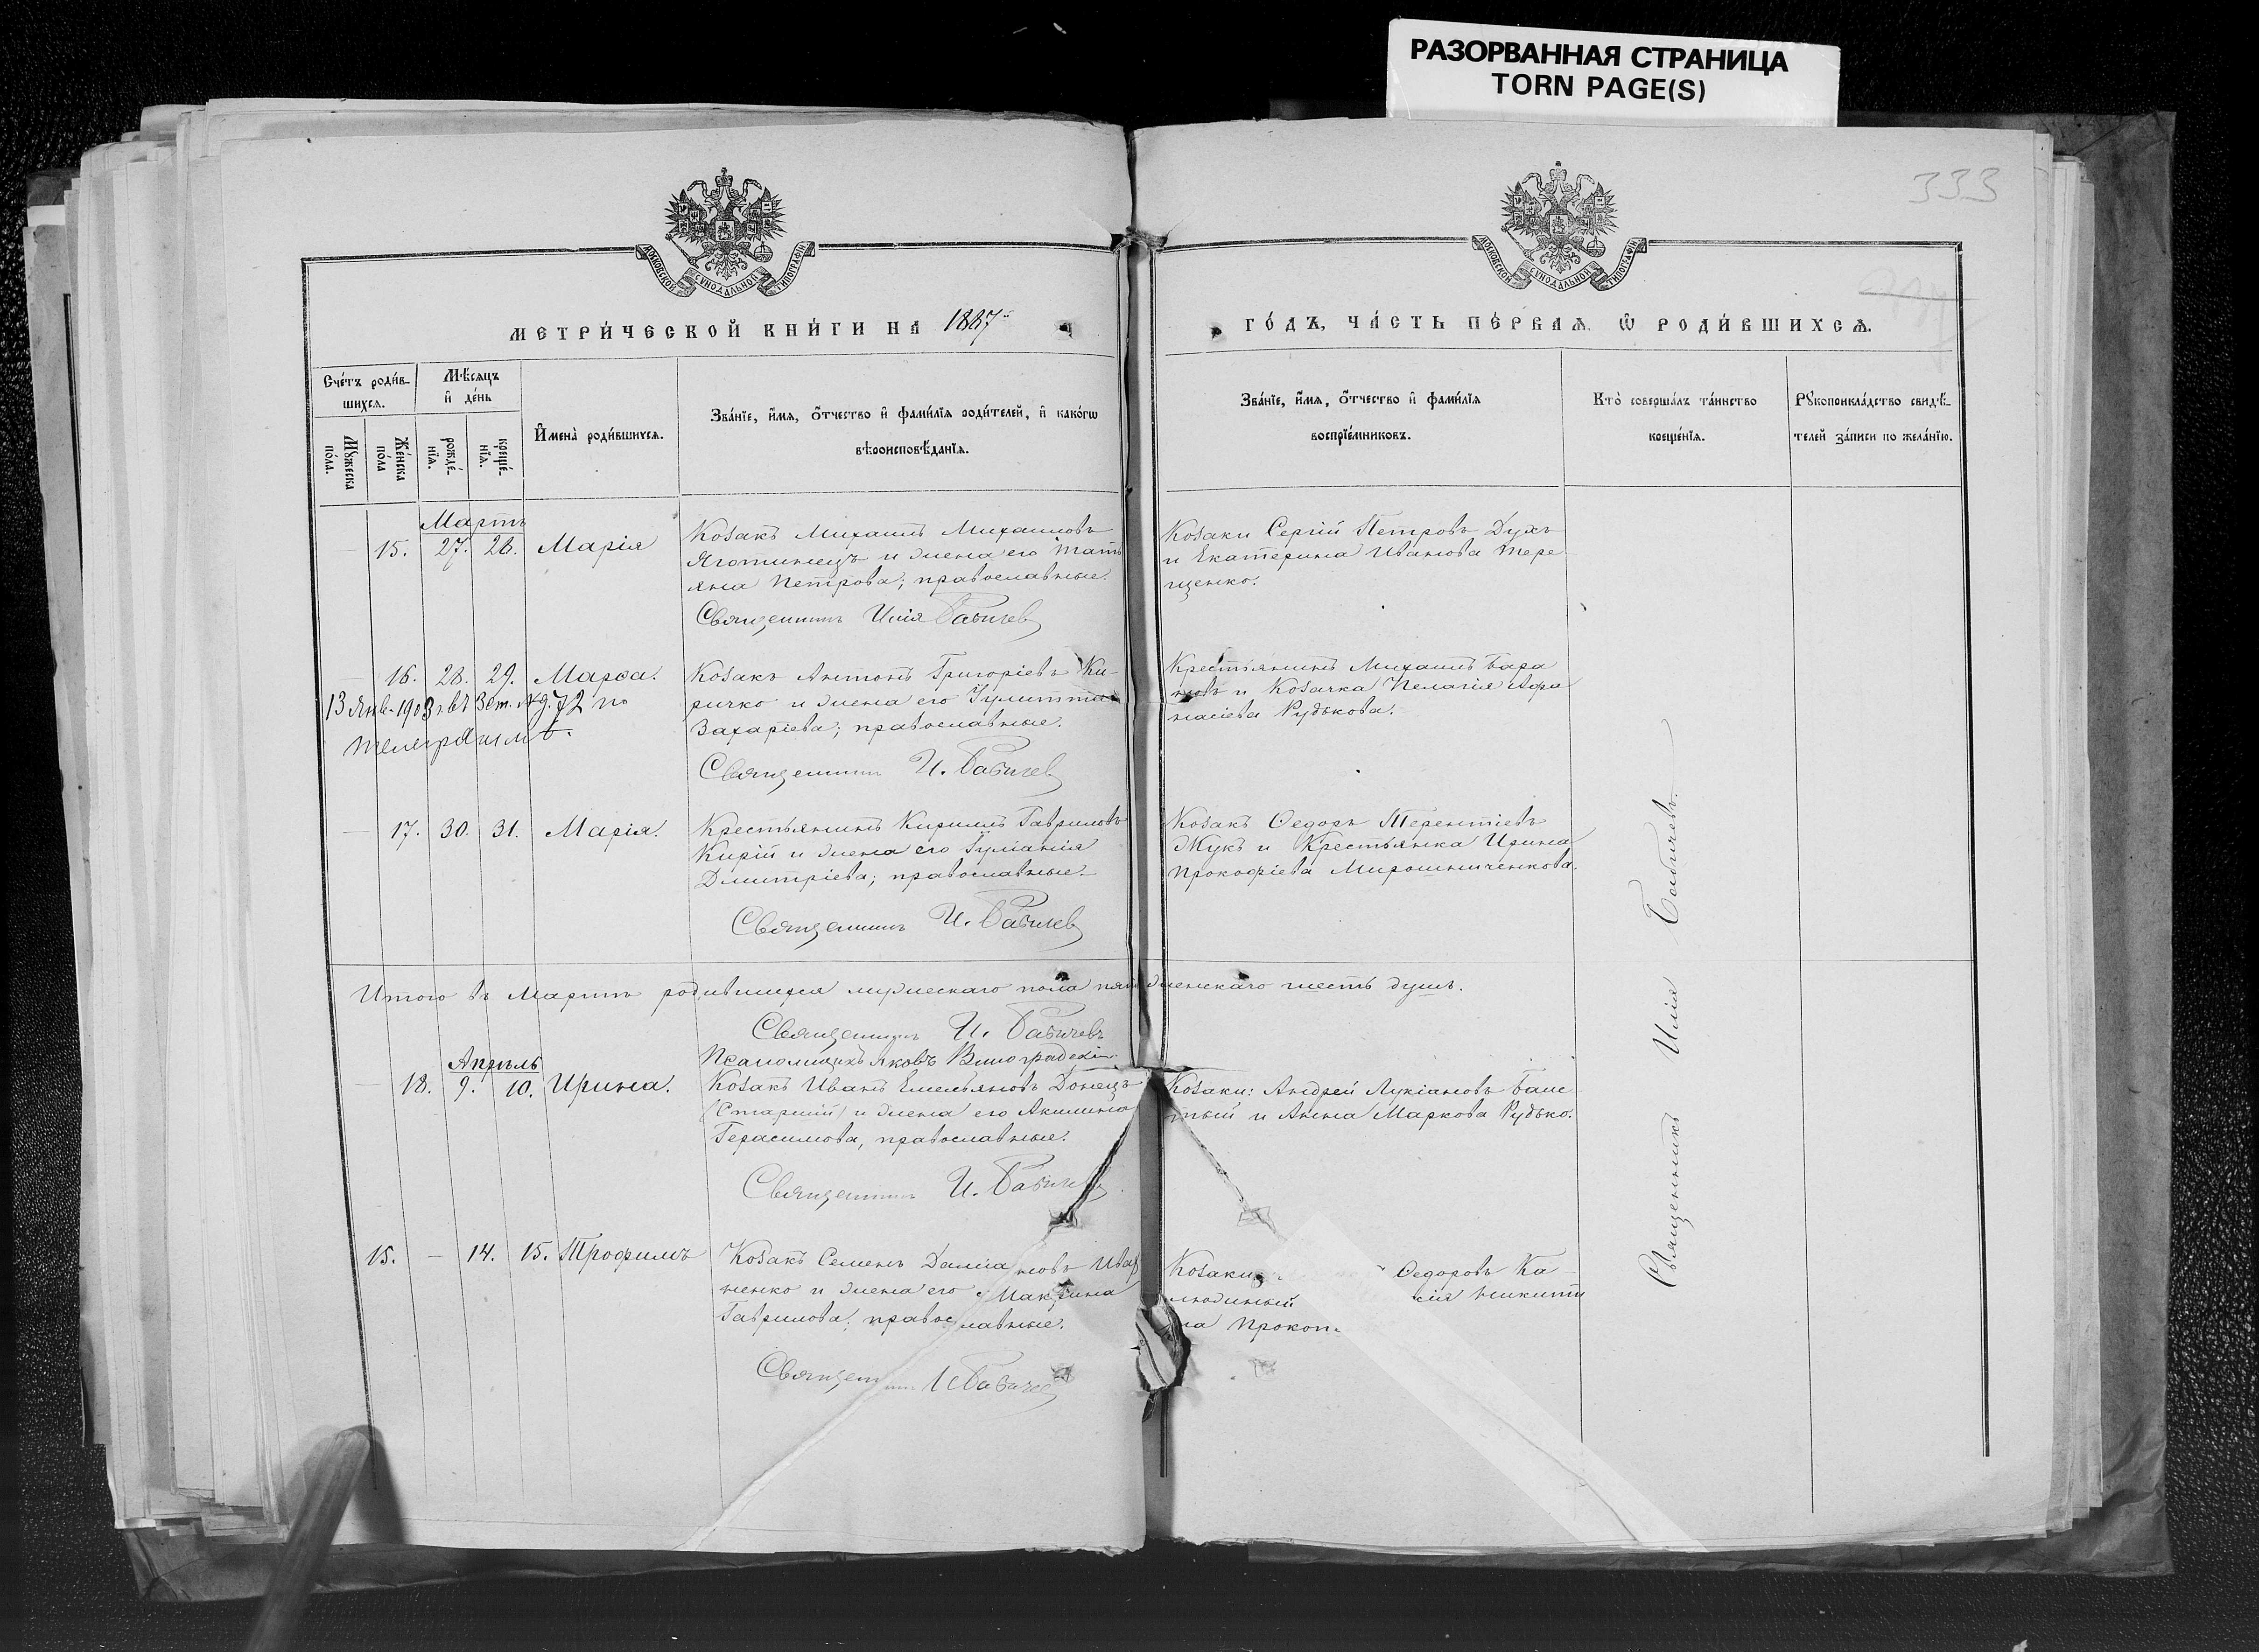 РАЗОРВАННАЯ СТРАНИЦА
TORN PAGE(S)
333
МОСКОВСКОЙ СѴНОДАЛЬНОЙ ТИПОГРАФІИ
МОСКОВСКОЙ СѴНОДАЛЬНОЙ ТИПОГРАФІИ
МЕТРИ́ЧЕСКОЙ КНИ́ГИ НА 1887
ГО́ДЪ, ЧА́СТЬ ПЕ́РВАѦ, Ѽ РОДИ́ВШИХСѦ.
Сче́тъ роди́в-
шихсѧ.
Мꙋжеска по́ла.
Же́нска по́ла
Мѣ́сѧцъ
и҆ де́нь
рожде́-
нїѧ.
креще́-
нїѧ.
И҆мена̀ роди́вшихсѧ.
Зва́нїе, и҆́мѧ, ѻ҆́тчество и҆ фами́лїѧ роди́телей, и҆ како́гѡ
вѣроисповѣ́данїѧ.
Зва́нїе, и҆́мѧ, ѻ҆́тчество и҆ фами́лїѧ
воспрїе́мниковъ.
Кто̀ соверша́лъ та́инство
креще́нїѧ.
Рꙋкоприкла́дство свидѣ́-
телей за́писи по жела́нїю.
Мартъ
— 15. 27. 28. Марія
Козакъ Михаилъ Михаиловъ
Яготинецъ и жена его Тать
яна Петрова; православные.
Священникъ Илія Бабичев
Козаки Сергій Петровъ Духъ
и Екатерина Иванова Тере
щенко.
— 16. 28. 29. Марѳа.
13 Янв. 1903 г. въ 3 ст. № 72 по
Козакъ Антонъ Григоріевъ Ки-
ричко и жена его Іулитта
Захаріева; православные.
Священникъ И. Бабичев
Крестьянинъ Михаилъ Бара
новъ и Козачка Пелагія Аѳа
насіева Рудькова.
— 17. 30. 31. Марія.
Крестьянинъ Кириллъ Гавриловъ
Кирій и жена его Іуліанія
Дмитріева; православные.
Священникъ И. Бабичев
Козакъ Ѳедоръ Терентіевъ
Жукъ и Крестьянка Ирина
Прокофіева Мирошниченкова.
Итого въ Мартѣ родившихся мужескаго пола пять женскаго шесть душъ.
Священникъ И. Бабичевъ
Псаломщикъ Яковъ Виноградскій
Апрѣль
— 18. 9. 10. Ирина.
Козакъ Иванъ Емельяновъ Донецъ
(Старшій) и жена его Акилина
Герасимова, православные.
Священникъ И. Бабичев
Козаки: Андрей Лукіановъ
и Анна Маркова Рудько.
15. — 14. 15. Трофимъ
Козакъ Семенъ Даміановъ Ива
ненко и жена его Макрина
Гаврилова; православные.
Священникъ И Бабичев
Козаки Ѳедоровъ Ка
Никити
на Прокоп
Священникъ Илія Бабичевъ.